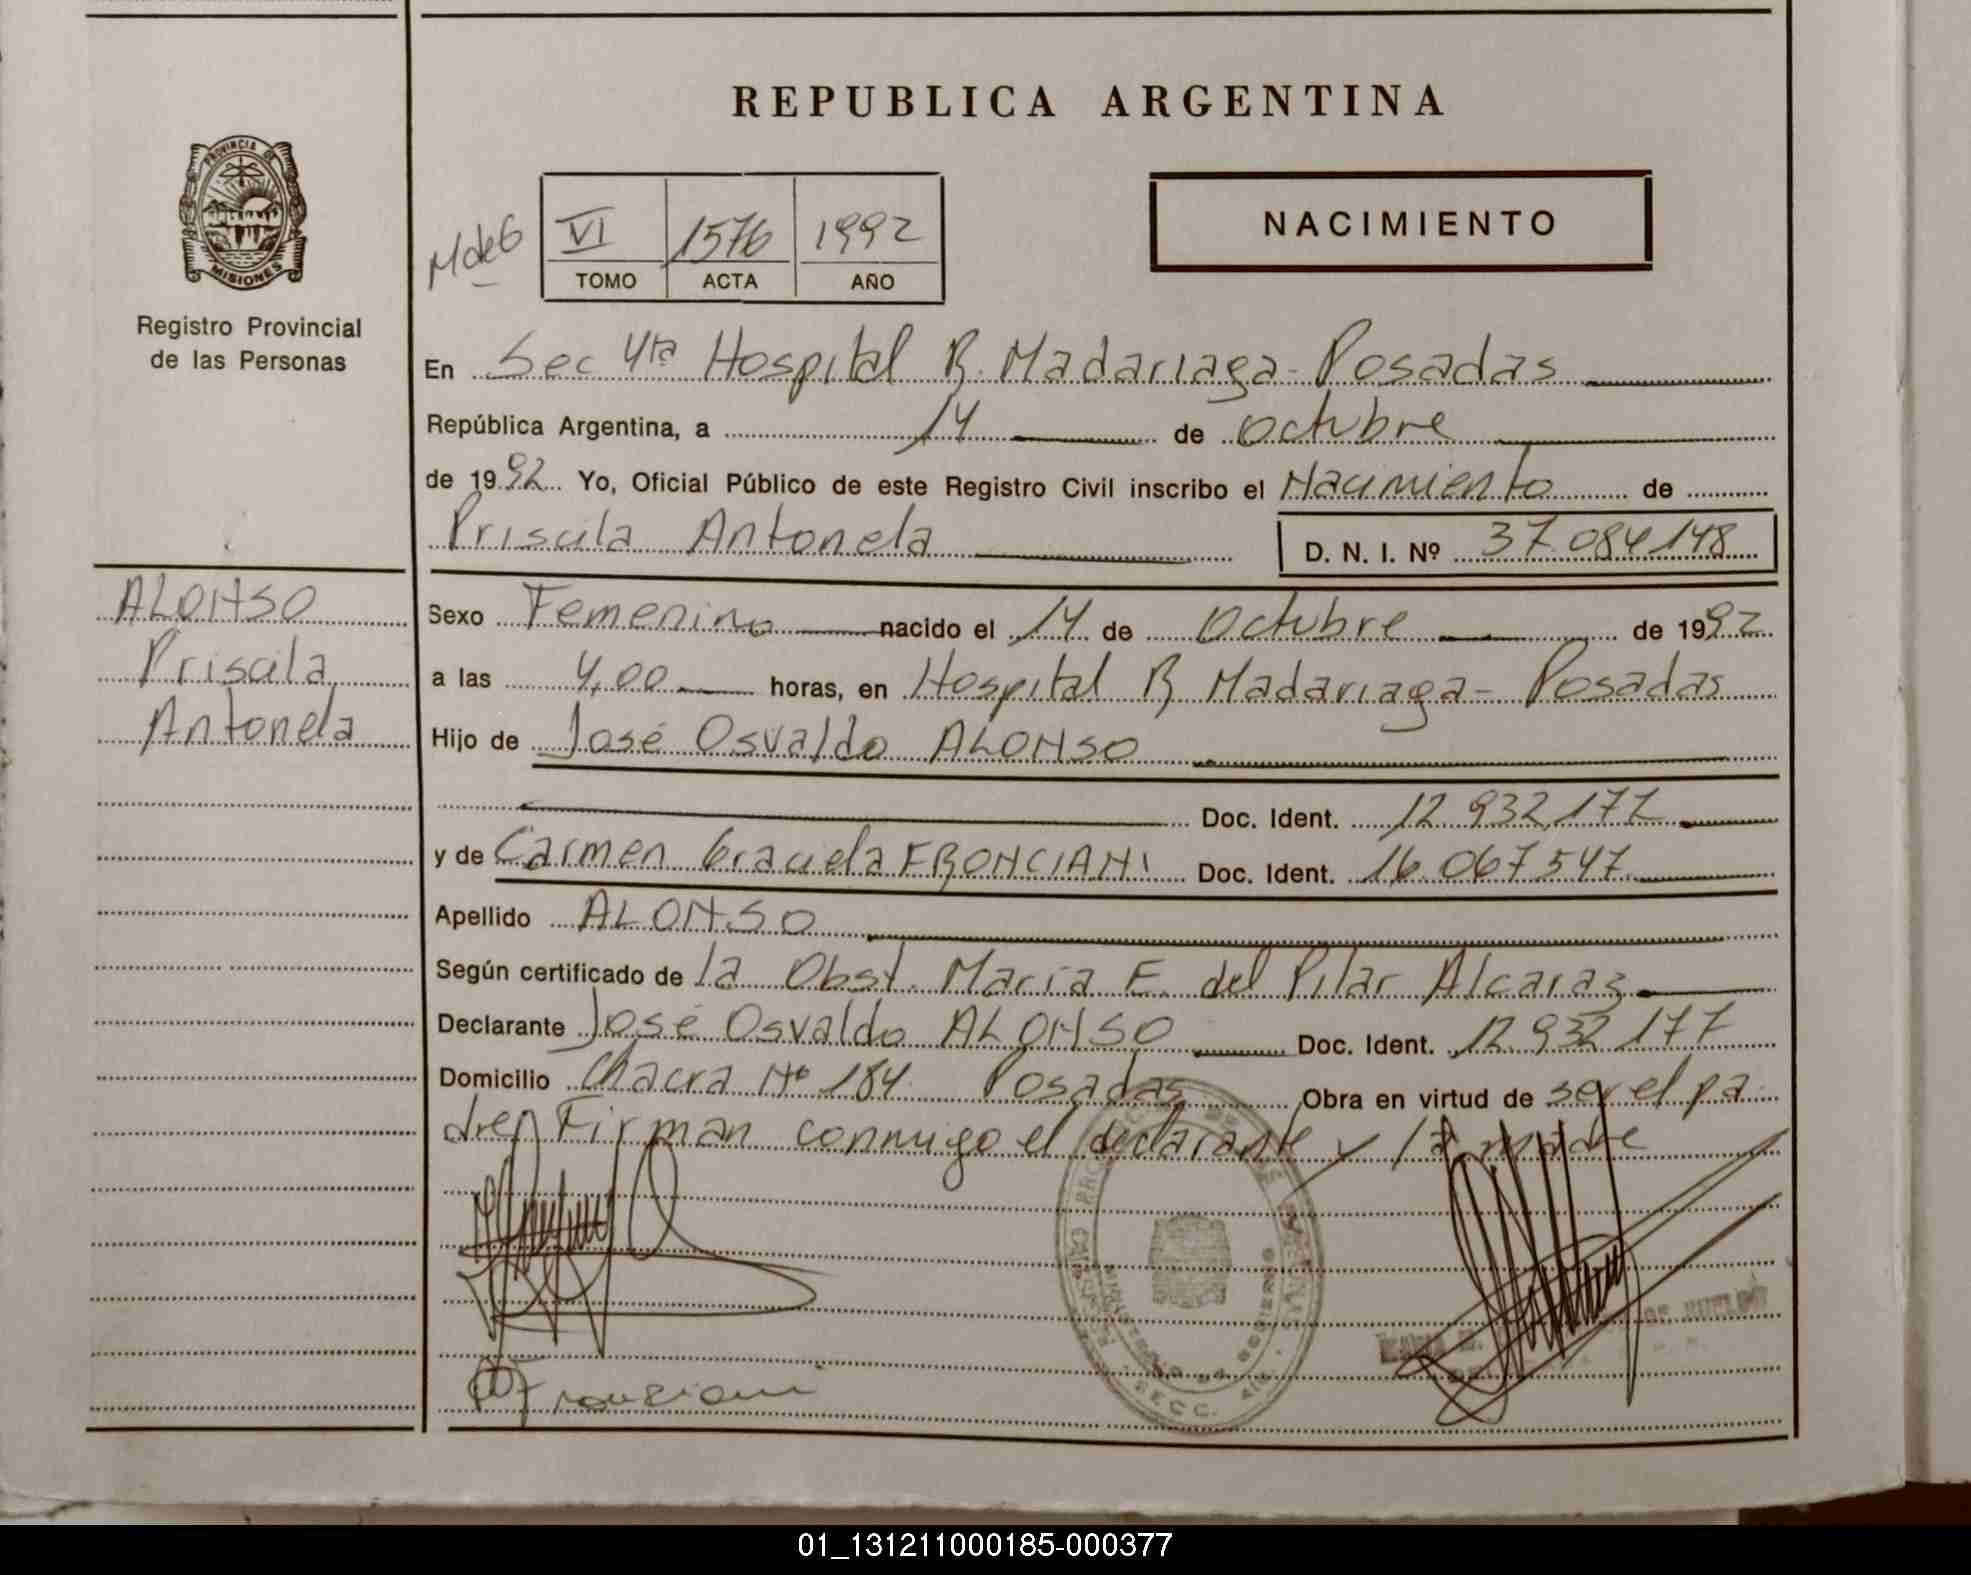 REPUBLICA ARGENTINA
PROVINCIA DE
MISIONES
Registro Provincial
de las Personas
M de G
VI 1576 1992
TOMO ACTA AÑO
NACIMIENTO
En Sec 4ta Hospital R. Madariaga - Posadas
República Argentina, a 14 de octubre
de 1992 Yo, Oficial Público de este Registro Civil inscribo el Nacimiento de
Priscila Antonela D. N. I. Nº 37.084.148
ALONSO
Priscila
Antonela
Sexo Femenino nacido el 14 de Octubre de 1992
a las 4,00 horas, en Hospital R Madariaga - Posadas
Hijo de José Osvaldo ALONSO
Doc. Ident. 12.932.177
y de Carmen Graciela FRONCIANI Doc. Ident. 16.067.547
Apellido ALONSO
Según certificado de la Obst. María E. del Pilar Alcaraz
Declarante José Osvaldo ALONSO Doc. Ident. 12.932.177
Domicilio Chacra Nº 184. Posadas Obra en virtud de ser el pa
dre Firman conmigo el declarante y la madre
01_131211000185-000377